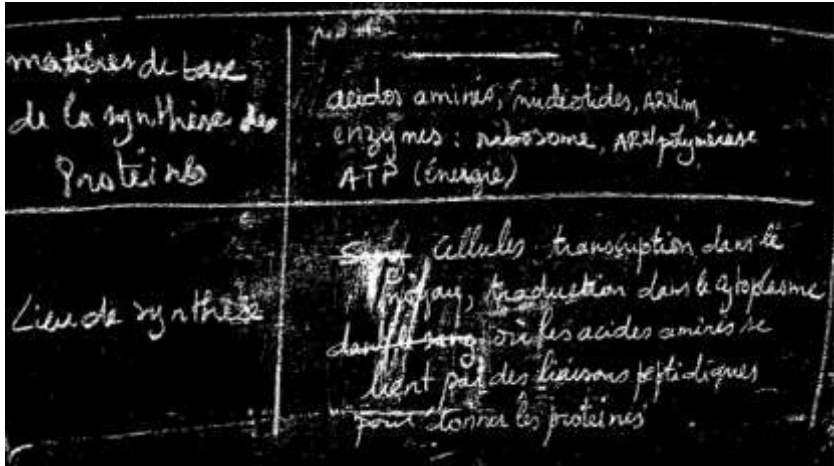 matières de base
de la synthèse des
Protéines
acides aminés, nucléotides, ARNm
enzymes : ribosome, ARN polymérase
ATP (énergie)
Lieu de synthèse
Sang cellules transcription dans le
noyau, traduction dans le cytoplasme
dans le sang où les acides aminés se
lient par des liaisons peptidiques
pour donner les protéines